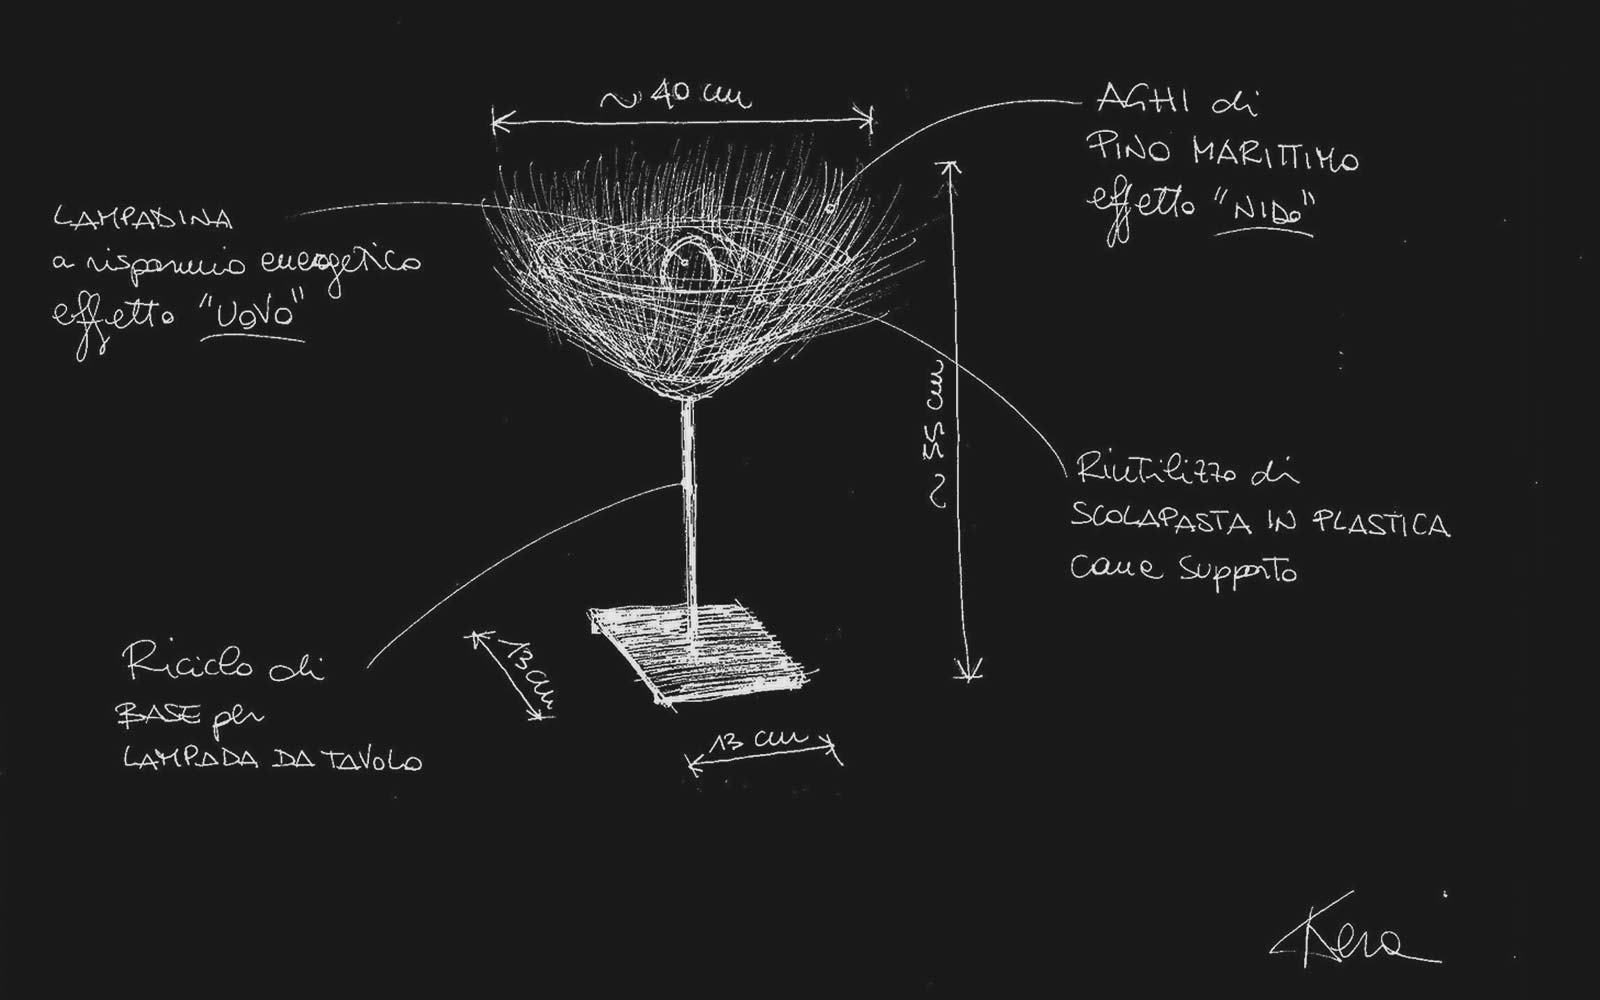 ~ 40 cm
AGHI di
PINO MARITTIMO
effetto "NIDO"
LAMPADINA
a risparmio energetico
effetto "UOVO"
~ 55 cm
Riutilizzo di
SCOLAPASTA IN PLASTICA
come supporto
Riciclo di
BASE per
LAMPADA DA TAVOLO
13 cm
13 cm
Kera